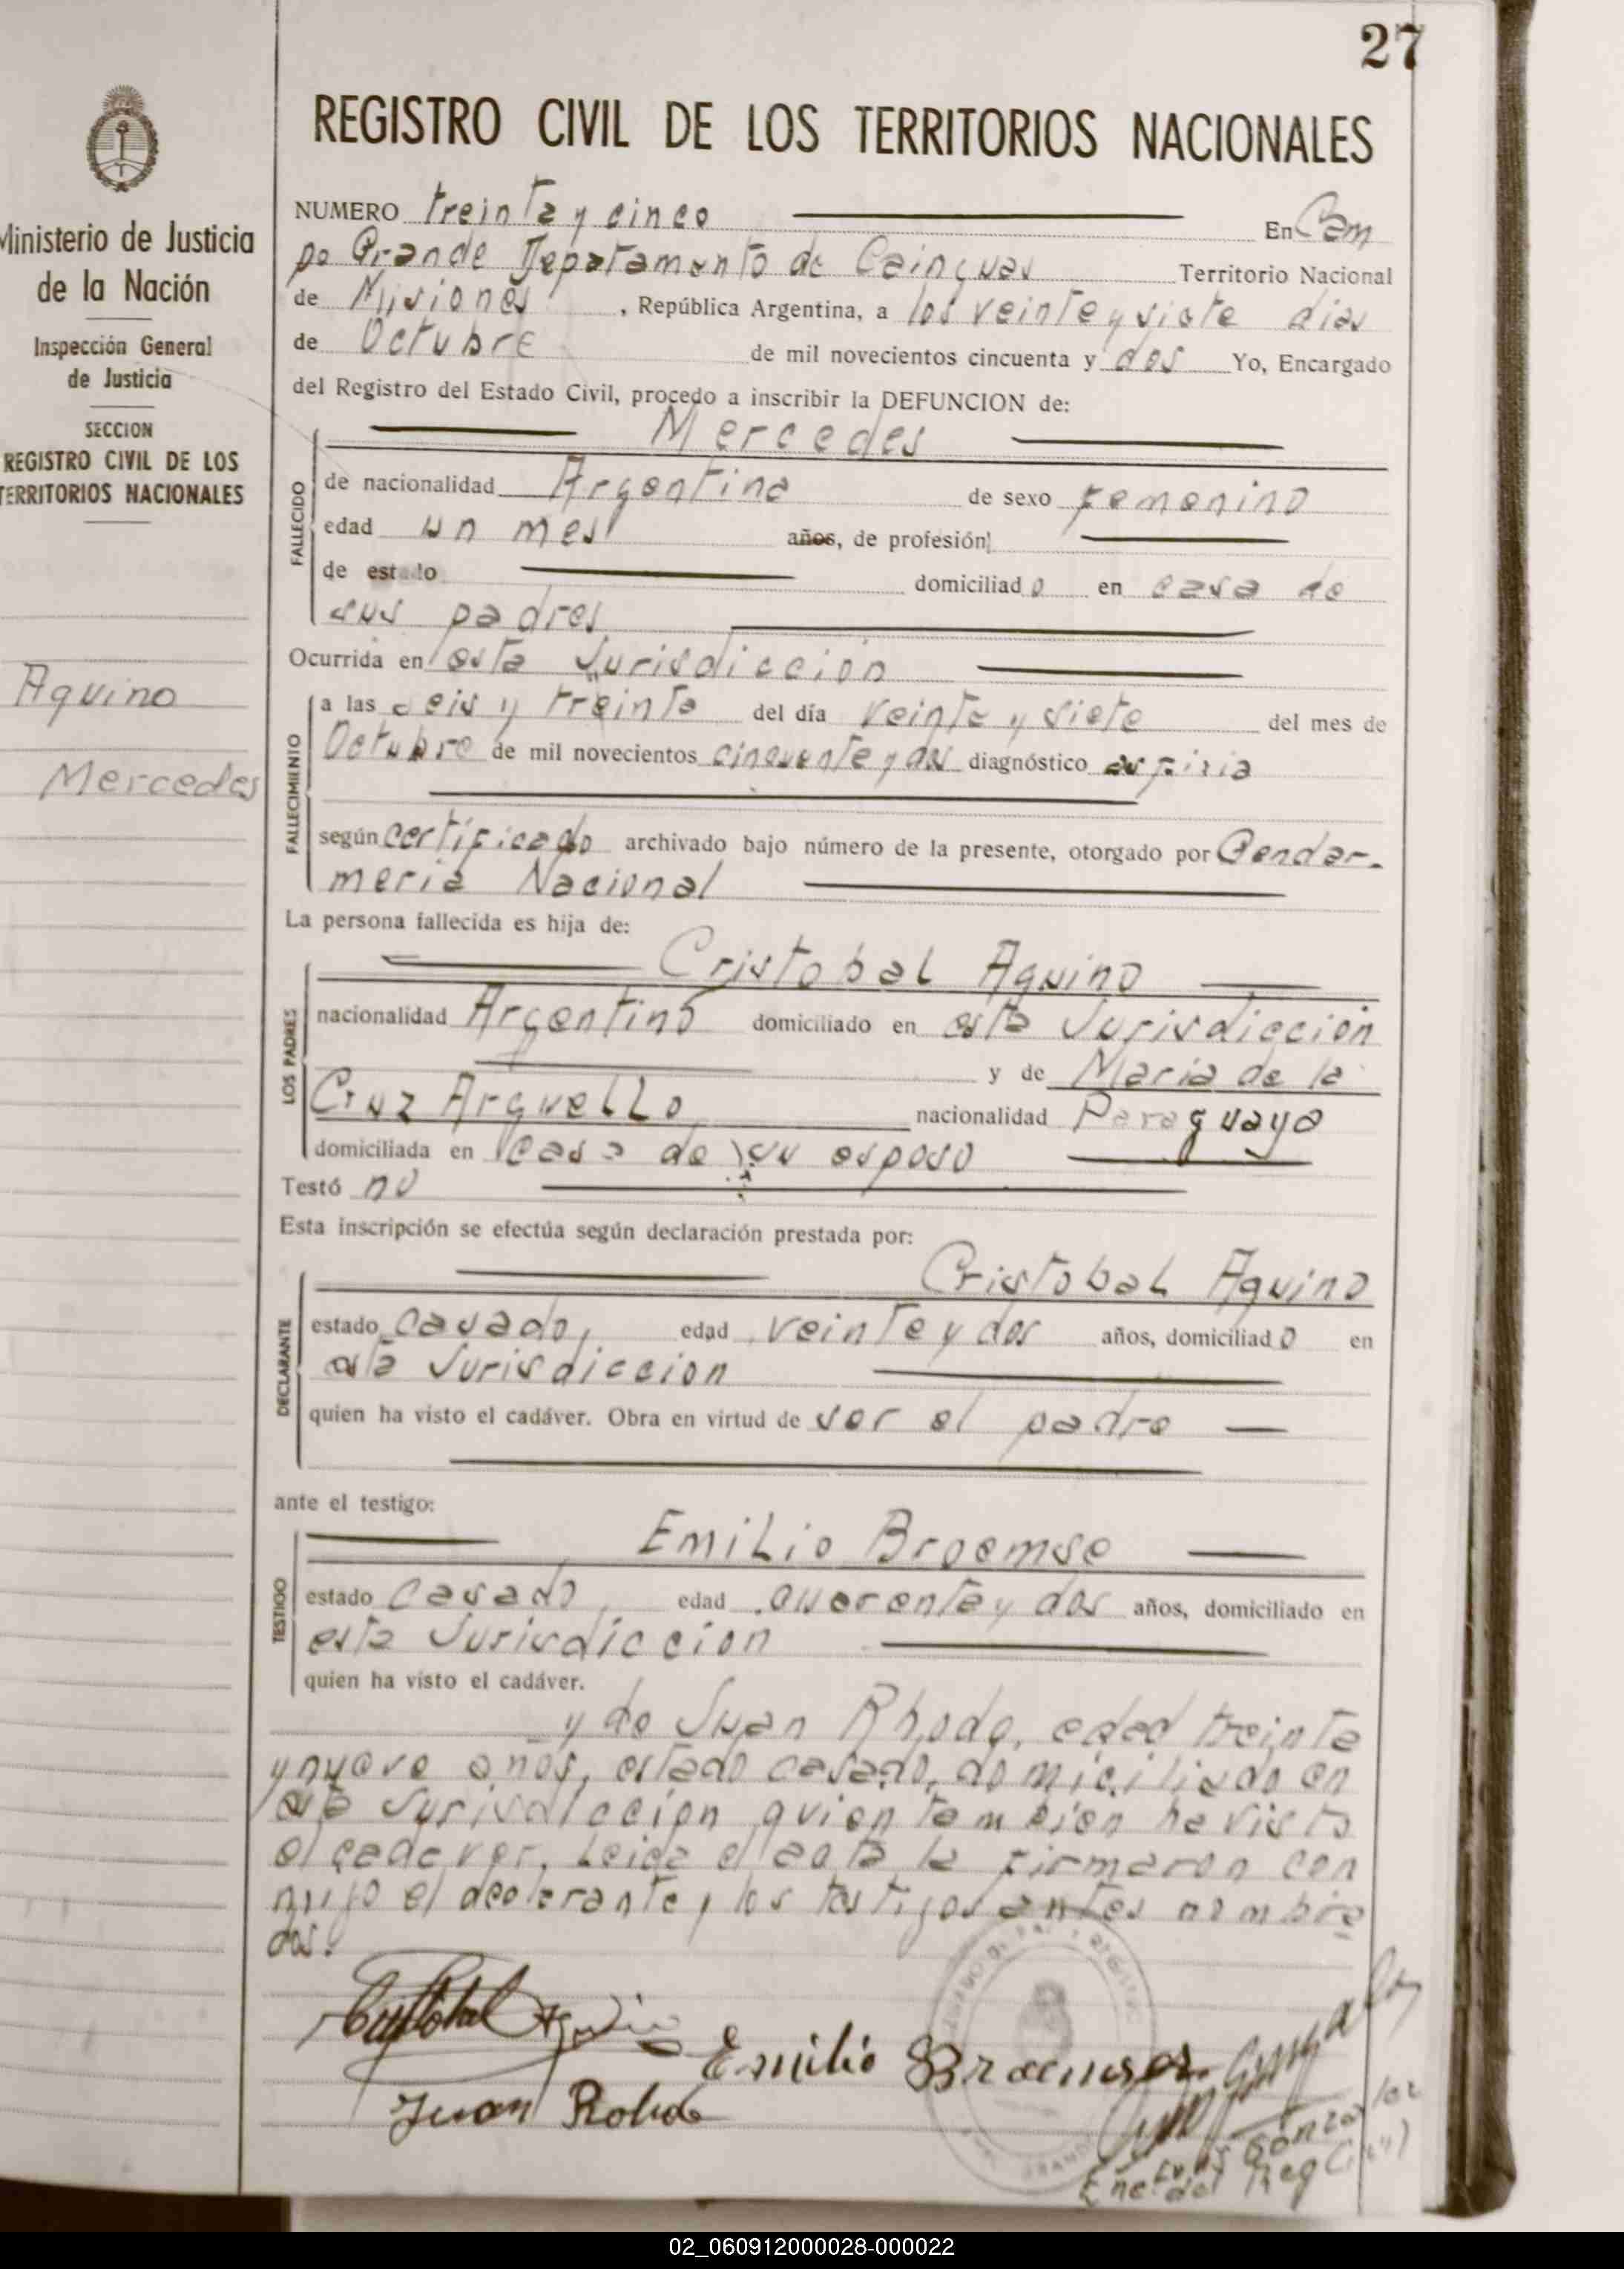 27
REGISTRO CIVIL DE LOS TERRITORIOS NACIONALES
Ministerio de Justicia
de la Nación
Inspección General
de Justicia
SECCION
REGISTRO CIVIL DE LOS
TERRITORIOS NACIONALES
Aquino
Mercedes
NUMERO treinta y cinco En Cam
po Grande Departamento de Cainguas Territorio Nacional
de Misiones, República Argentina, a los veinte y siete dias
de Octubre de mil novecientos cincuenta y dos Yo, Encargado
del Registro del Estado Civil, procedo a inscribir la DEFUNCION de:
Mercedes
FALLECIDO
de nacionalidad Argentina de sexo femenino
edad un mes años, de profesión
de estado domiciliado en casa de
sus padres
Ocurrida en esta Jurisdicción
FALLECIMIENTO
a las seis y treinta del día veinte y siete del mes de
Octubre de mil novecientos cincuente y dos diagnóstico
según certificado archivado bajo número de la presente, otorgado por Gendar-
meria Nacional
La persona fallecida es hija de:
Cristobal Aquino
LOS PADRES
nacionalidad Argentino domiciliado en esta Jurisdicción
y de Maria de la
Cruz Arguello nacionalidad Paraguaya
domiciliada en casa de su esposo
Testó no
Esta inscripción se efectúa según declaración prestada por:
Cristobal Aquino
DECLARANTE
estado casado, edad veinte y dos años, domiciliado en
esta Jurisdiccion
quien ha visto el cadáver. Obra en virtud de ser el padre
ante el testigo:
Emilio Broemse
TESTIGO
estado casado, edad cuarenta y dos años, domiciliado en
esta Jurisdiccion
quien ha visto el cadáver.
y de Juan Rhode, edad treinta
y nueve años, estado casado, domiciliado en
esta Jurisdiccion quien tambien ha visto
el cadaver. Leida el acta la firmaron con
migo el declarante y los testigos antes nombra
dos.
Cristobal Aquino
Emilio Broemser
Juan Rohde
Gonzalez
Enc. del Reg Civil
02_060912000028-000022